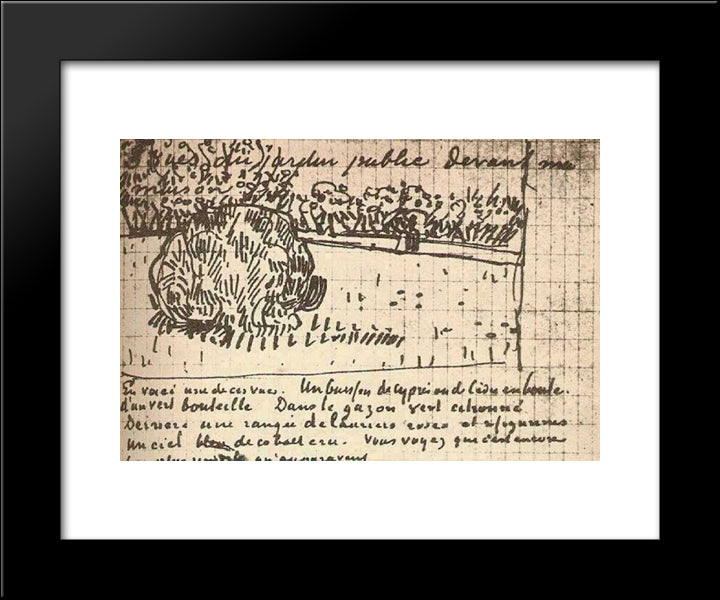 vues du jardin public devant ma
maison
En voici une de ces vues. Un buisson de cyprès ronds en boule
d'un vert bouteille Dans le gazon vert citronné
Derrière une rangée de lauriers roses et
Un ciel bleu de cobalt cru. Vous voyez que c'est encore
plus qu'auparavant